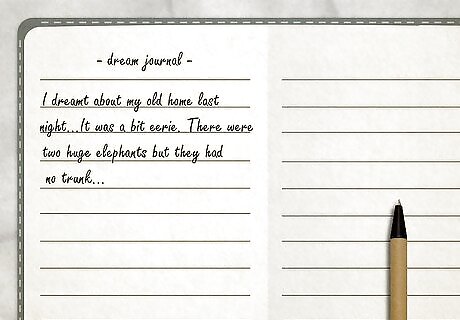 - dream journal -
I dreamt about my old home last
night...It was a bit eerie. There were
two huge elephants but they had
no trunk...